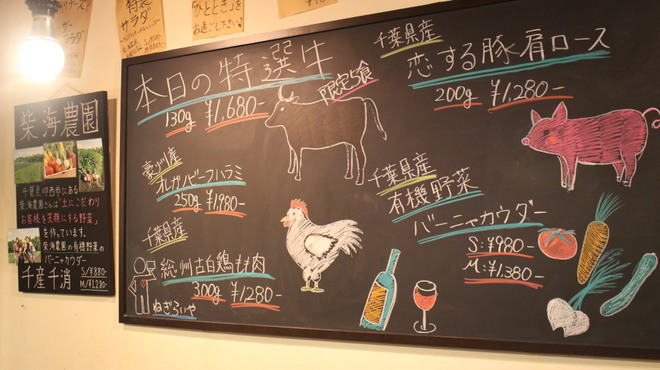 特製
サラダ
「ひととき」を
お過ごし下さい
柴海農園
千葉県印西市にある
柴海農園さんは「土にこだわり
お客様を笑顔にする野菜」
を作っています。
柴海農園の有機野菜の
バーニャカウダー
S/¥880-
千産千消 M/¥1,230-
本日の特選牛
限定5食
130g ¥1,680-
豪州産
オレガノビーフハラミ
250g ¥1,980-
千葉県産
総州古白鶏もも肉
300g ¥1,280-
ねぎらいや
千葉県産
恋する豚肩ロース
200g ¥1,280-
千葉県産
有機野菜
バーニャカウダー
S:¥980-
M:¥1,380-